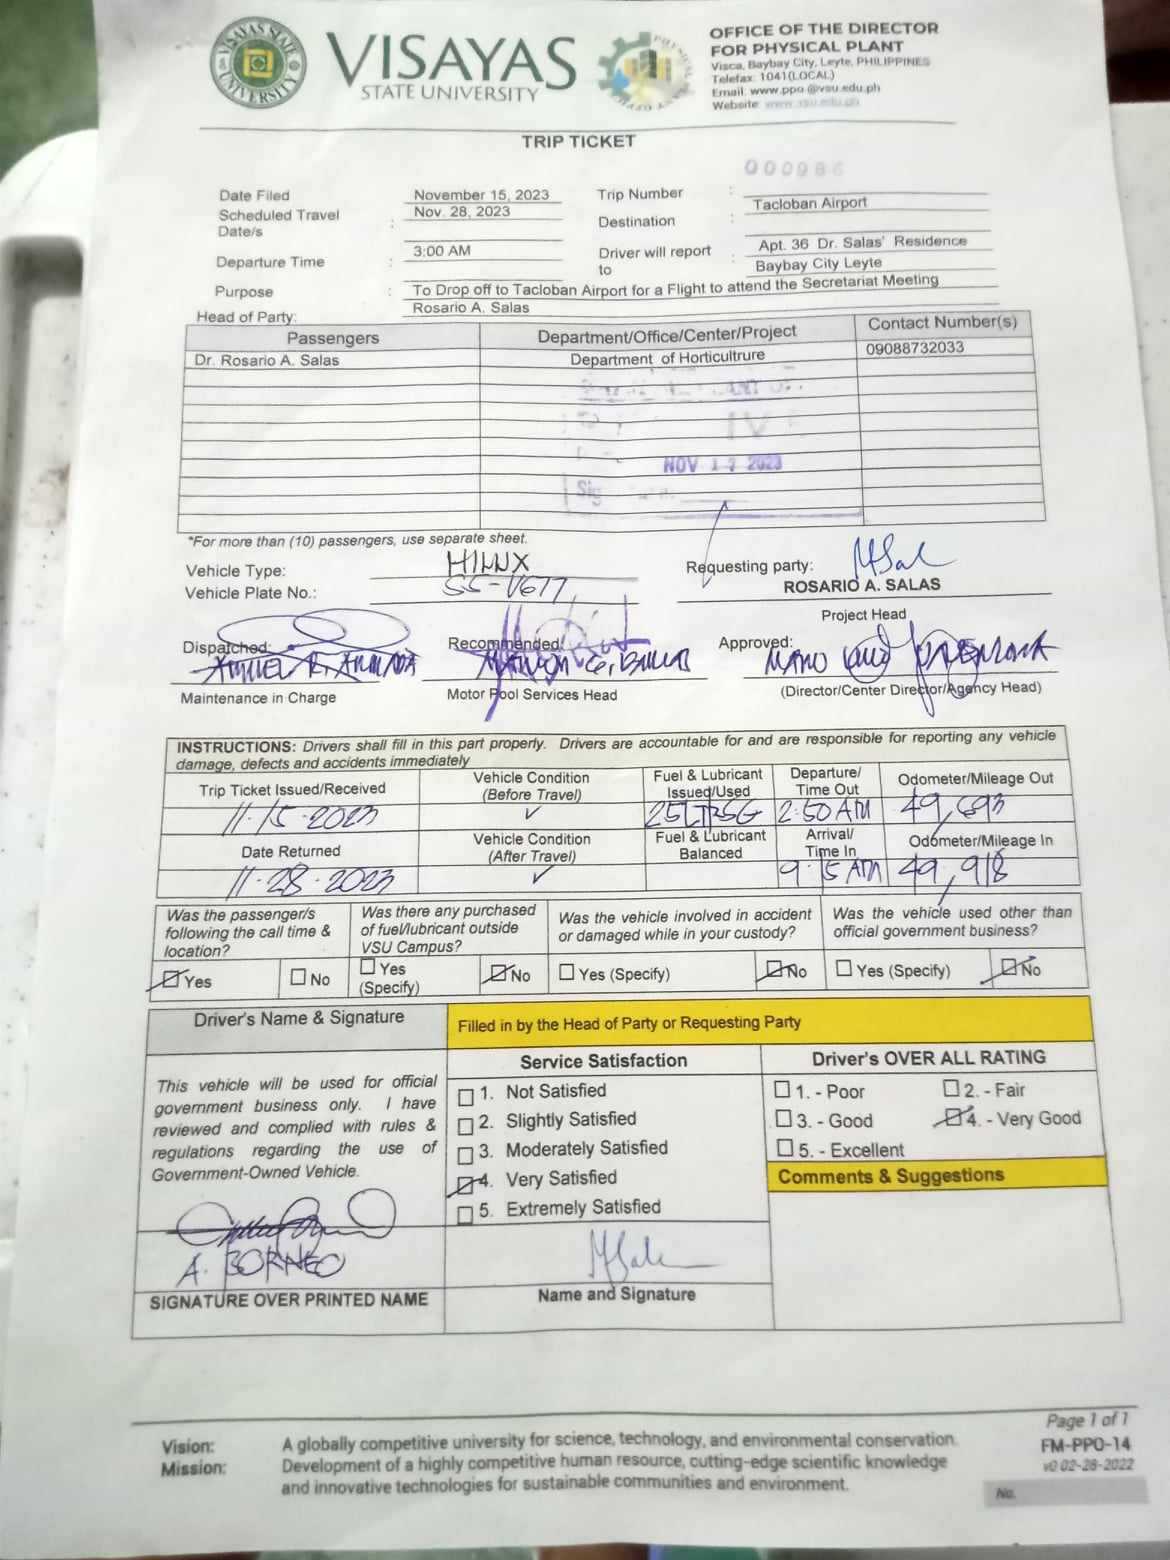 VISAYAS STATE UNIVERSITY
VISAYAS
STATE UNIVERSITY
OFFICE OF THE DIRECTOR
FOR PHYSICAL PLANT
Visca, Baybay City, Leyte, PHILIPPINES
Telefax: 1041(LOCAL)
Email: www.ppo.@vsu.edu.ph
Website: www.vsu.edu.ph
TRIP TICKET
000986
Date Filed November 15, 2023 Trip Number :
Scheduled Travel Date/s : Nov. 28, 2023 Destination : Tacloban Airport
Departure Time : 3:00 AM Driver will report to : Apt. 36 Dr. Salas' Residence
Baybay City Leyte
Purpose : To Drop off to Tacloban Airport for a Flight to attend the Secretariat Meeting
Head of Party: Rosario A. Salas
Passengers Department/Office/Center/Project Contact Number(s)
Dr. Rosario A. Salas Department of Horticultrure 09088732033
NOV 17 2023
*For more than (10) passengers, use separate sheet.
Vehicle Type: HILUX Requesting party:
Vehicle Plate No.: S5-V677 ROSARIO A. SALAS
Project Head
Dispatched: Recommended: Approved:
Maintenance in Charge Motor Pool Services Head (Director/Center Director/Agency Head)
INSTRUCTIONS: Drivers shall fill in this part properly. Drivers are accountable for and are responsible for reporting any vehicle
damage, defects and accidents immediately
Trip Ticket Issued/Received Vehicle Condition (Before Travel) Fuel & Lubricant Issued/Used Departure/ Time Out Odometer/Mileage Out
11-15-2023 ✓ 2:50 AM 49,693
Date Returned Vehicle Condition (After Travel) Fuel & Lubricant Balanced Arrival/ Time In Odometer/Mileage In
11-28-2023 ✓ 9:15 AM 49,918
Was the passenger/s following the call time & location? Was there any purchased of fuel/lubricant outside VSU Campus? Was the vehicle involved in accident or damaged while in your custody? Was the vehicle used other than official government business?
☑ Yes ☐ No ☐ Yes (Specify) ☑ No ☐ Yes (Specify) ☑ No ☐ Yes (Specify) ☑ No
Driver's Name & Signature Filled in by the Head of Party or Requesting Party
This vehicle will be used for official
government business only. I have
reviewed and complied with rules &
regulations regarding the use of
Government-Owned Vehicle.
A. BORNEO
SIGNATURE OVER PRINTED NAME
Service Satisfaction
☐ 1. Not Satisfied
☐ 2. Slightly Satisfied
☐ 3. Moderately Satisfied
☑ 4. Very Satisfied
☐ 5. Extremely Satisfied
Name and Signature
Driver's OVER ALL RATING
☐ 1. - Poor ☐ 2. - Fair
☐ 3. - Good ☑ 4. - Very Good
☐ 5. - Excellent
Comments & Suggestions
Vision: A globally competitive university for science, technology, and environmental conservation.
Mission: Development of a highly competitive human resource, cutting-edge scientific knowledge
and innovative technologies for sustainable communities and environment.
Page 1 of 1
FM-PPO-14
v0 02-28-2022
No.